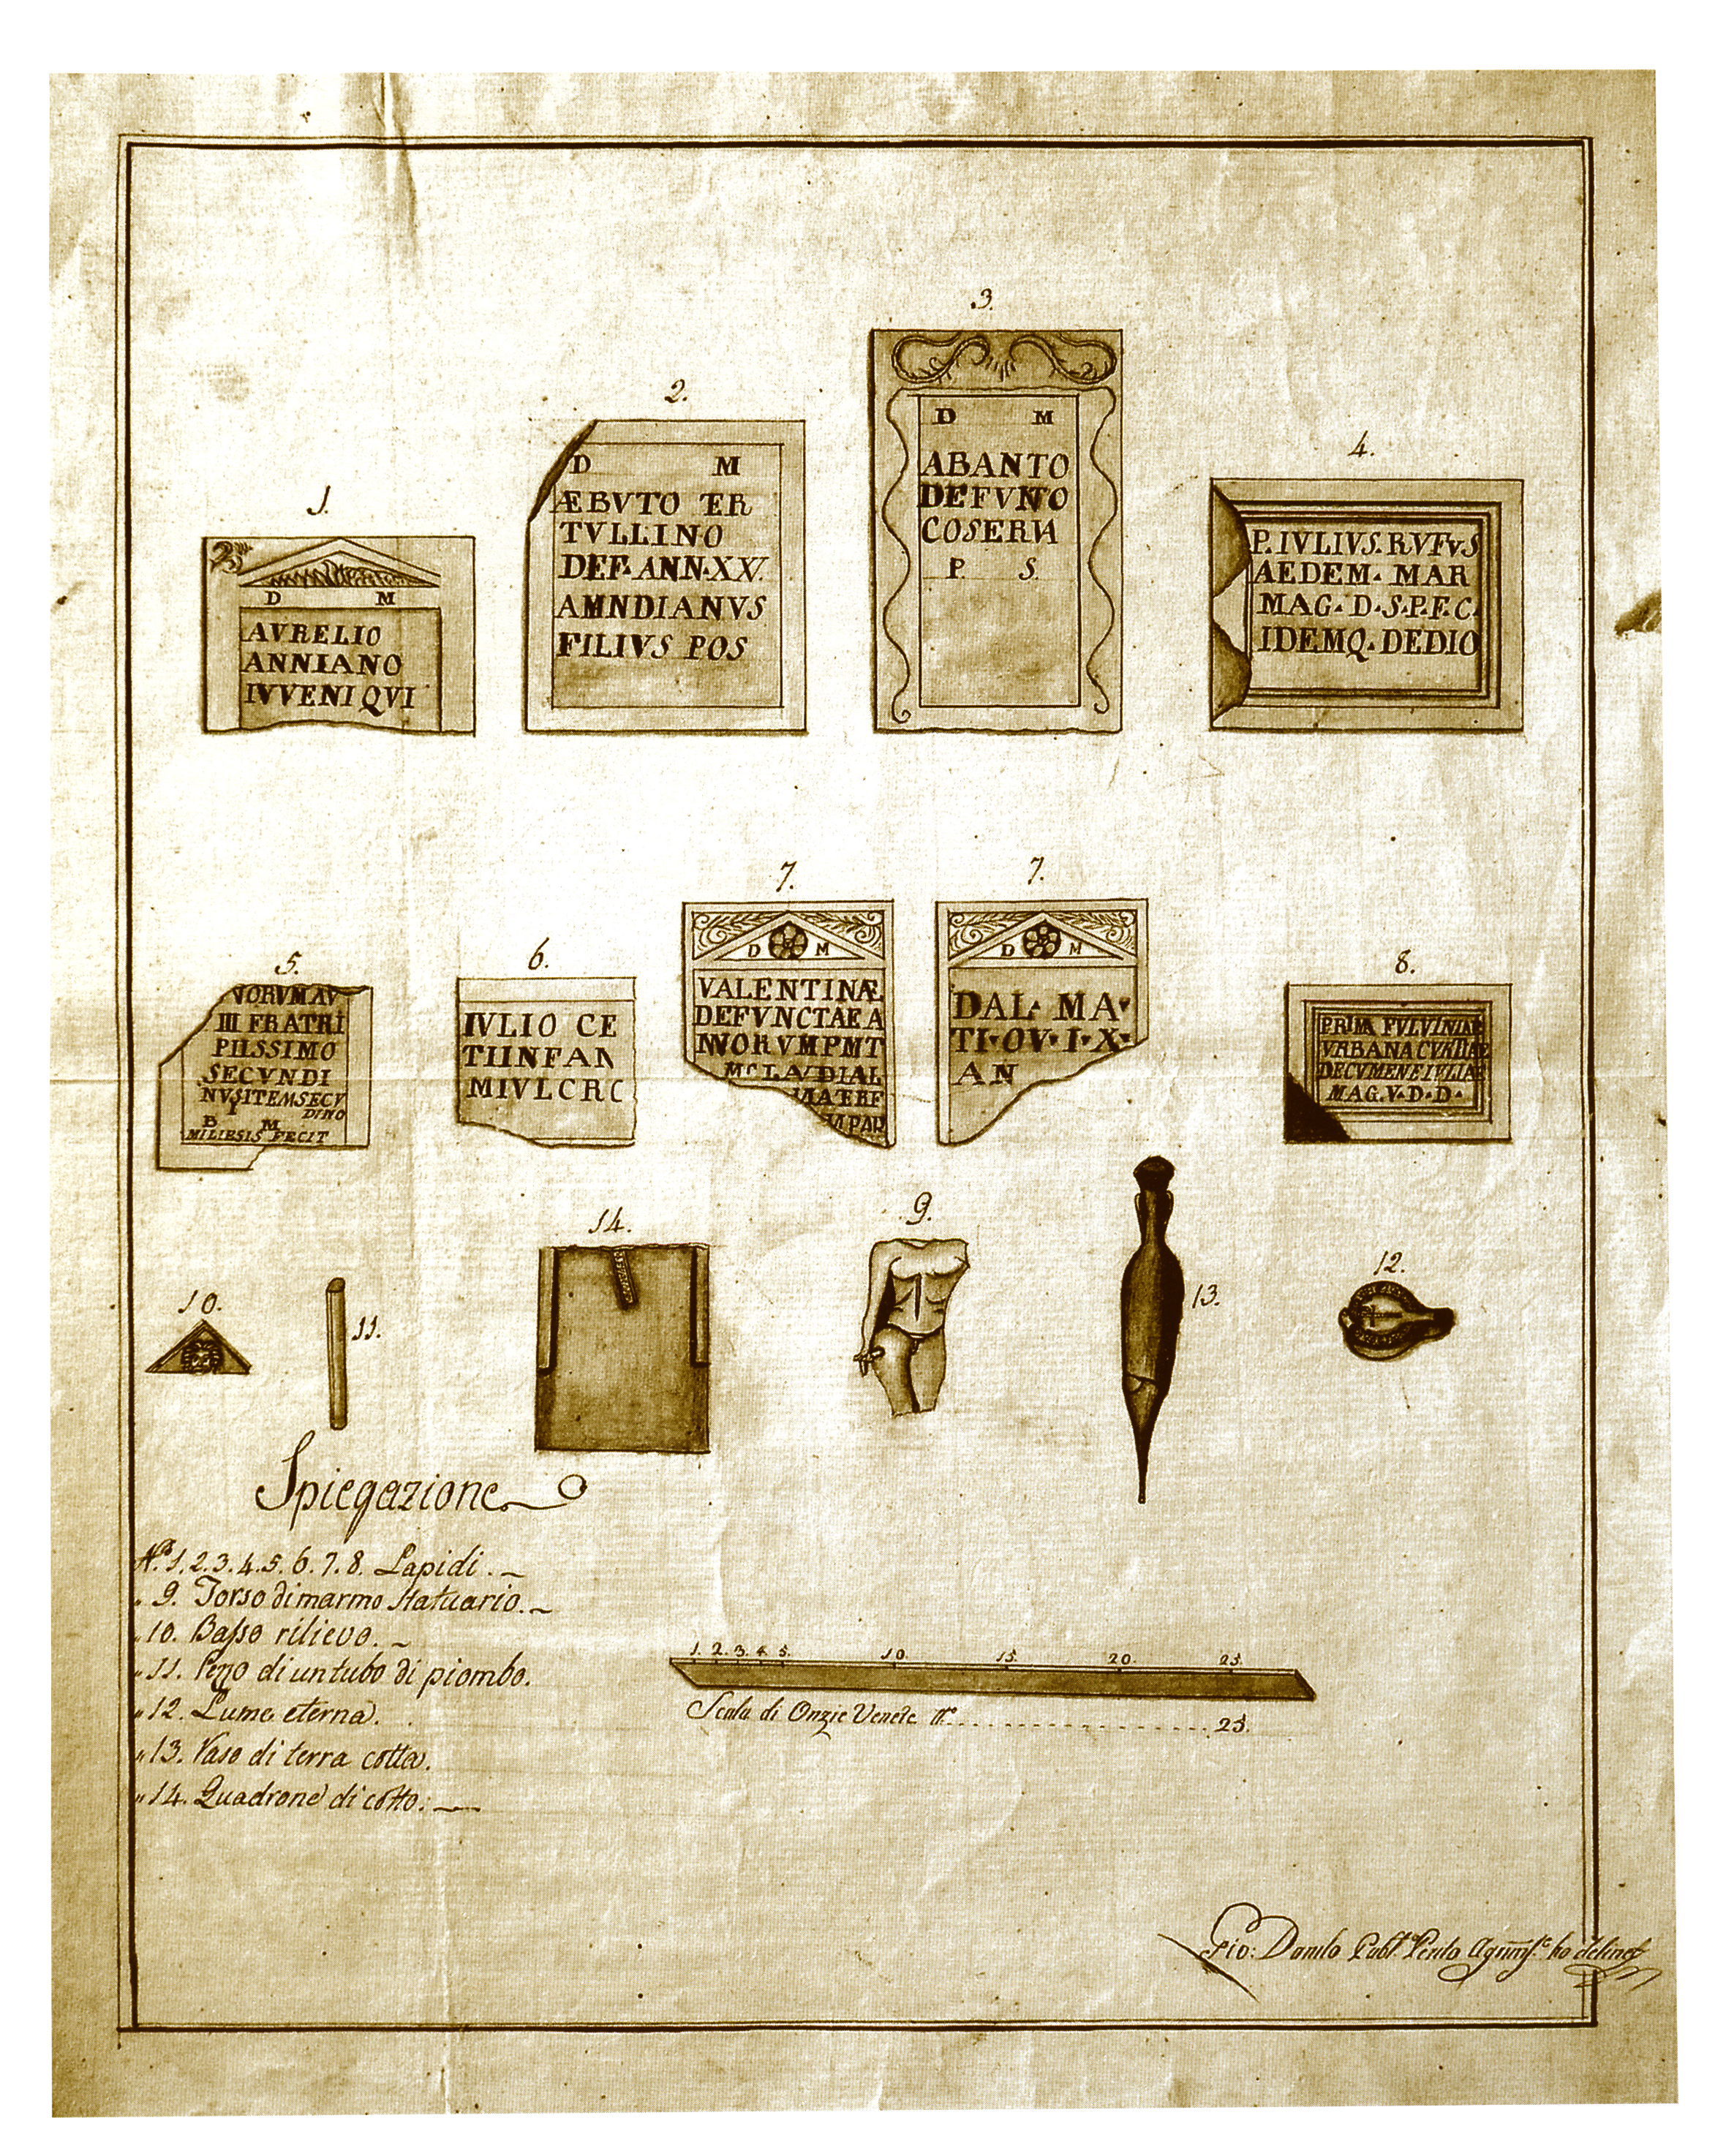 1.
D M
AVRELIO
ANNIANO
IVVENI QVI
2.
D M
ÆBVTO TER
TVLLINO
DEF· ANN·XX.
AMNDIANVS
FILIVS POS
3.
D M
ABANTO
DEFVNTO
COSERVA
P. S.
4.
P. IVLIVS. RVFVS
AEDEM· MAR
MAG· D·S·P.F.C.
IDEMQ· DEDIO
5.
VORVM AV
III FRATRI
PIISSIMO
SECVNDI
NVSITEMSECV
DINO
B M
FECIT
6.
IVLIO CE
TIINFAN
MIVLCRC
7.
D M
VALENTINÆ
DEFVNCTAE A
NVORVMPMT
MCLAVDIAL
PAR
7.
D M
DAL· MA·
TI·OV·I·X·
AN
8.
PRIMA FVLVINIAE
VRBANA
DECVMENE IVLIAE
MAG.V·D·D·
14.
9.
13.
12.
10.
11.
Spiegazione
N.º 1.2.3.4.5.6.7.8. Lapidi.
„ 9. Torso di marmo statuario.
„ 10. Baſso rilievo.
„ 11. Pezzo di un tubo di piombo.
„ 12. Lume eterna.
„ 13. Vaso di terra cotta.
„ 14. Quadrone di cotto.
1. 2. 3. 4. 5. 10. 15. 20. 25.
Scala di Onzie Venete N.º 25.
Gio: Danilo Pub.º Perito ho delineò